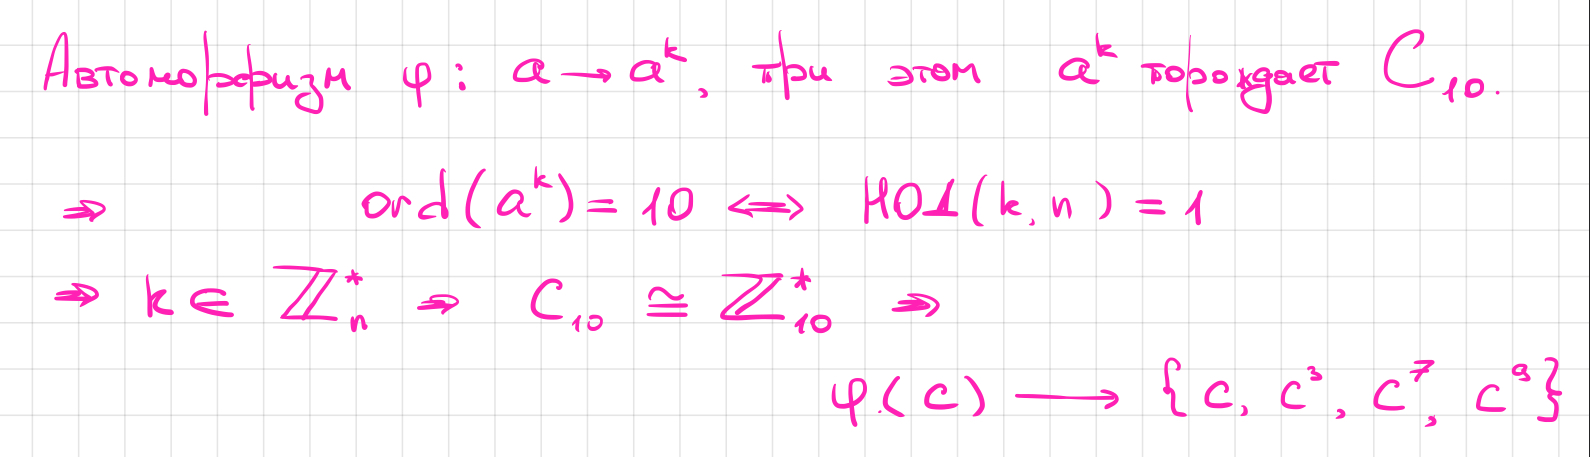 Автоморфизм φ: a → aᵏ, при этом aᵏ порождает C₁₀.
⇒ ord(aᵏ) = 10 ⟺ НОД(k, n) = 1
⇒ k ∈ ℤₙ* ⇒ C₁₀ ≅ ℤ₁₀* ⇒
φ(c) ⟶ {c, c³, c⁷, c⁹}